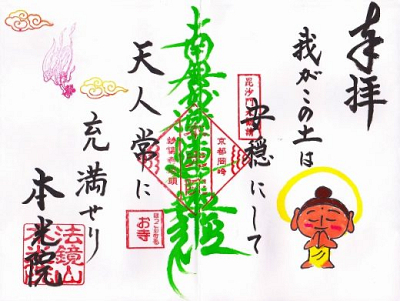 奉拝
我がこの土は
安穏にして
南無妙法蓮華経
天人常に
充満せり
本光院
京都岡崎
お寺
法鏡山